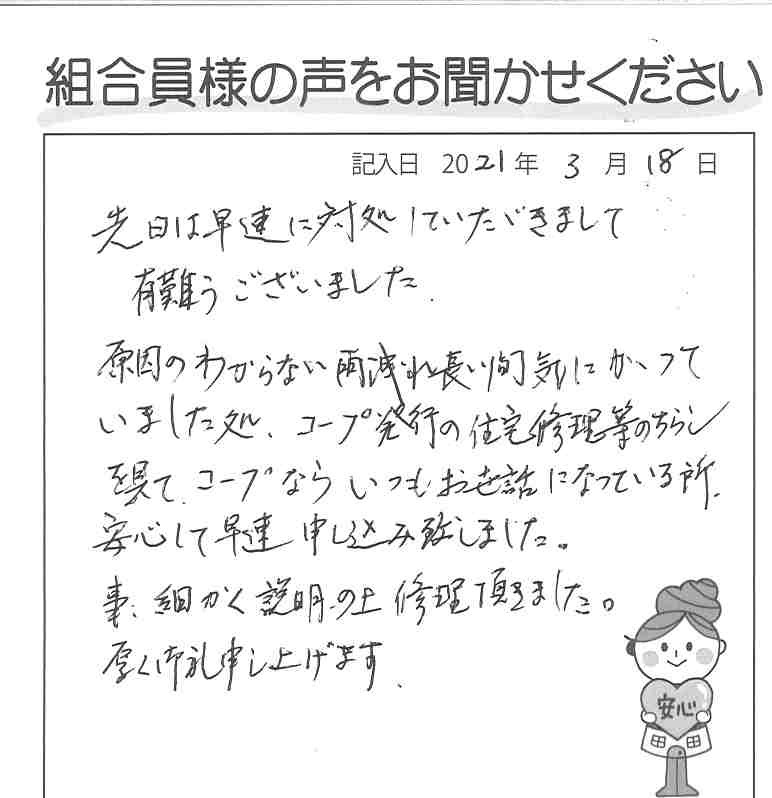 組合員様の声をお聞かせください
記入日 2021年 3月 18日
先日は早速に対処していただきまして
有難うございました.
原因のわからない雨洩れ長い間気にかかって
いました処、コープ発行の住宅修理等のちらし
を見て、コープなら いつもお世話になっている所、
安心して早速 申し込み致しました。
事、細かく説明の上 修理頂きました。
厚く御礼申し上げます.
安心